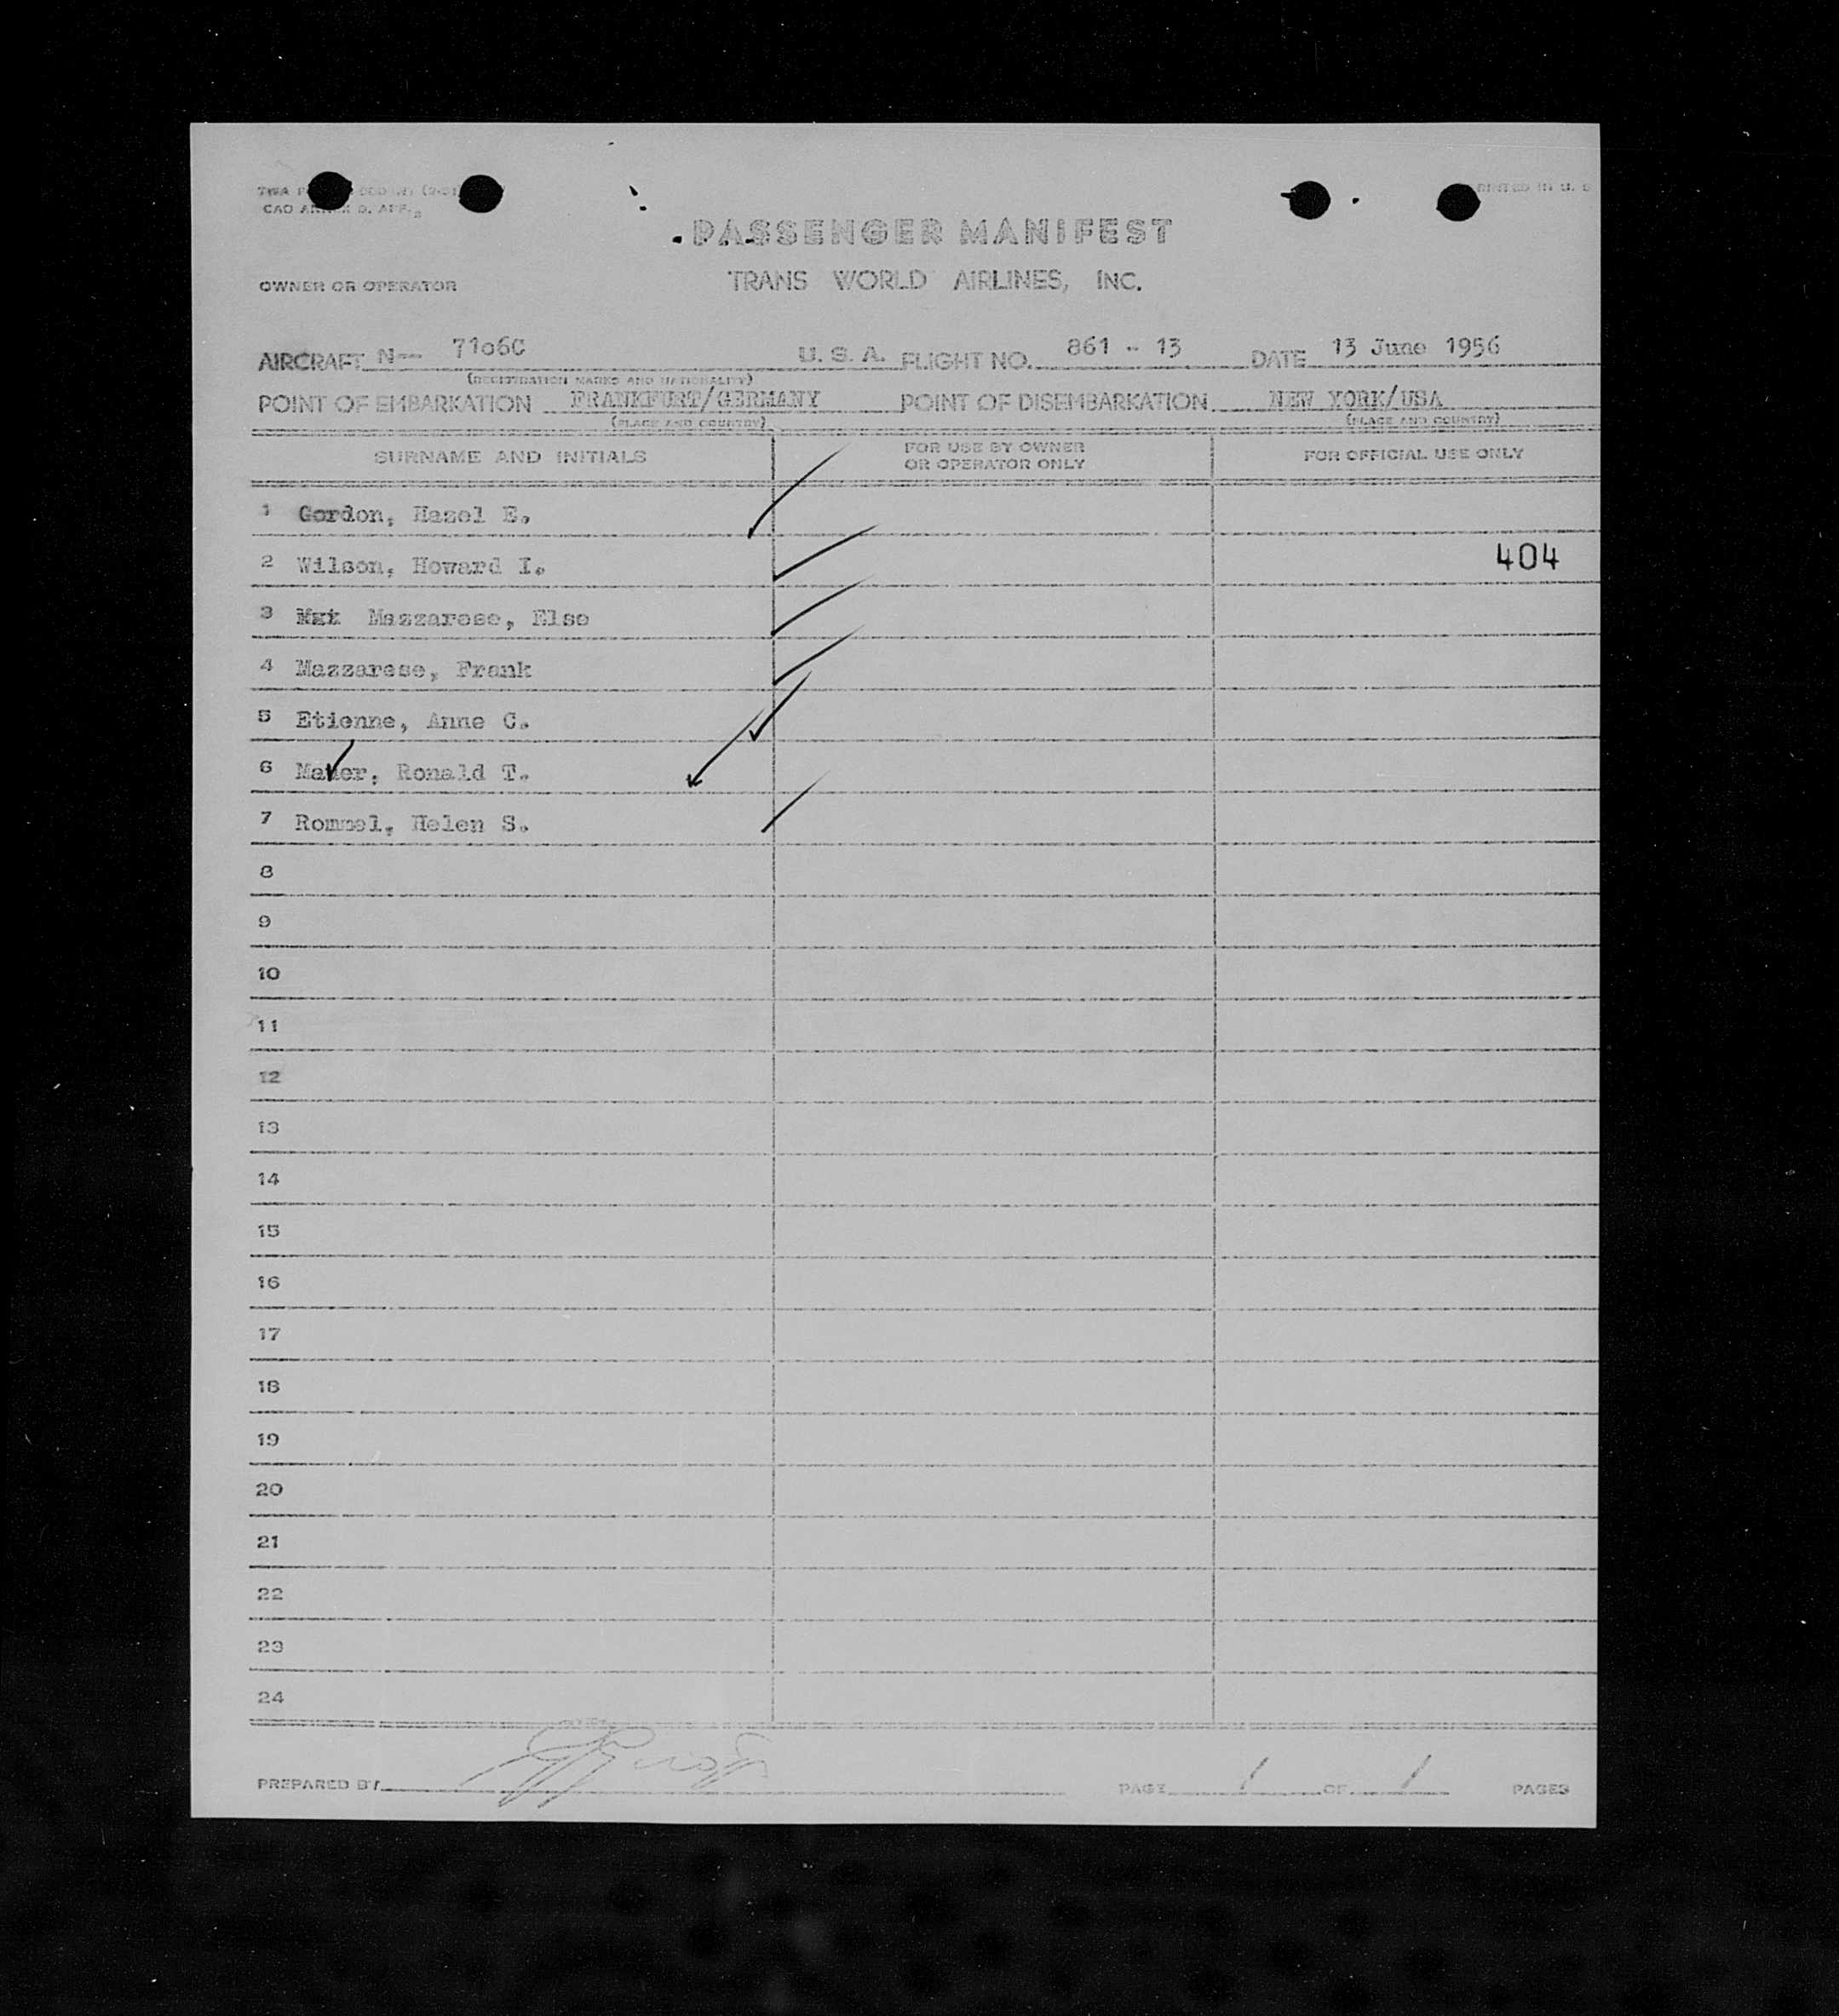 TWA
CAO
PRINTED IN U. S.
PASSENGER MANIFEST
OWNER OR OPERATOR TRANS WORLD AIRLINES, INC.
AIRCRAFT N-- 71o6C U. S. A. FLIGHT NO. 861 - 13 DATE 13 June 1956
(REGISTRATION MARKS AND NATIONALITY)
POINT OF EMBARKATION FRANKFURT/GERMANY POINT OF DISEMBARKATION NEW YORK/USA
(PLACE AND COUNTRY) (PLACE AND COUNTRY)
SURNAME AND INITIALS FOR USE BY OWNER OR OPERATOR ONLY FOR OFFICIAL USE ONLY
1 Gordon, Hazel E.
2 Wilson, Howard I. 404
3 Mazzarese, Else
4 Mazzarese, Frank
5 Etienne, Anne C.
6 Mauer, Ronald T.
7 Rommel, Helen S.
8
9
10
11
12
13
14
15
16
17
18
19
20
21
22
23
24
PREPARED BY PAGE 1 OF 1 PAGES